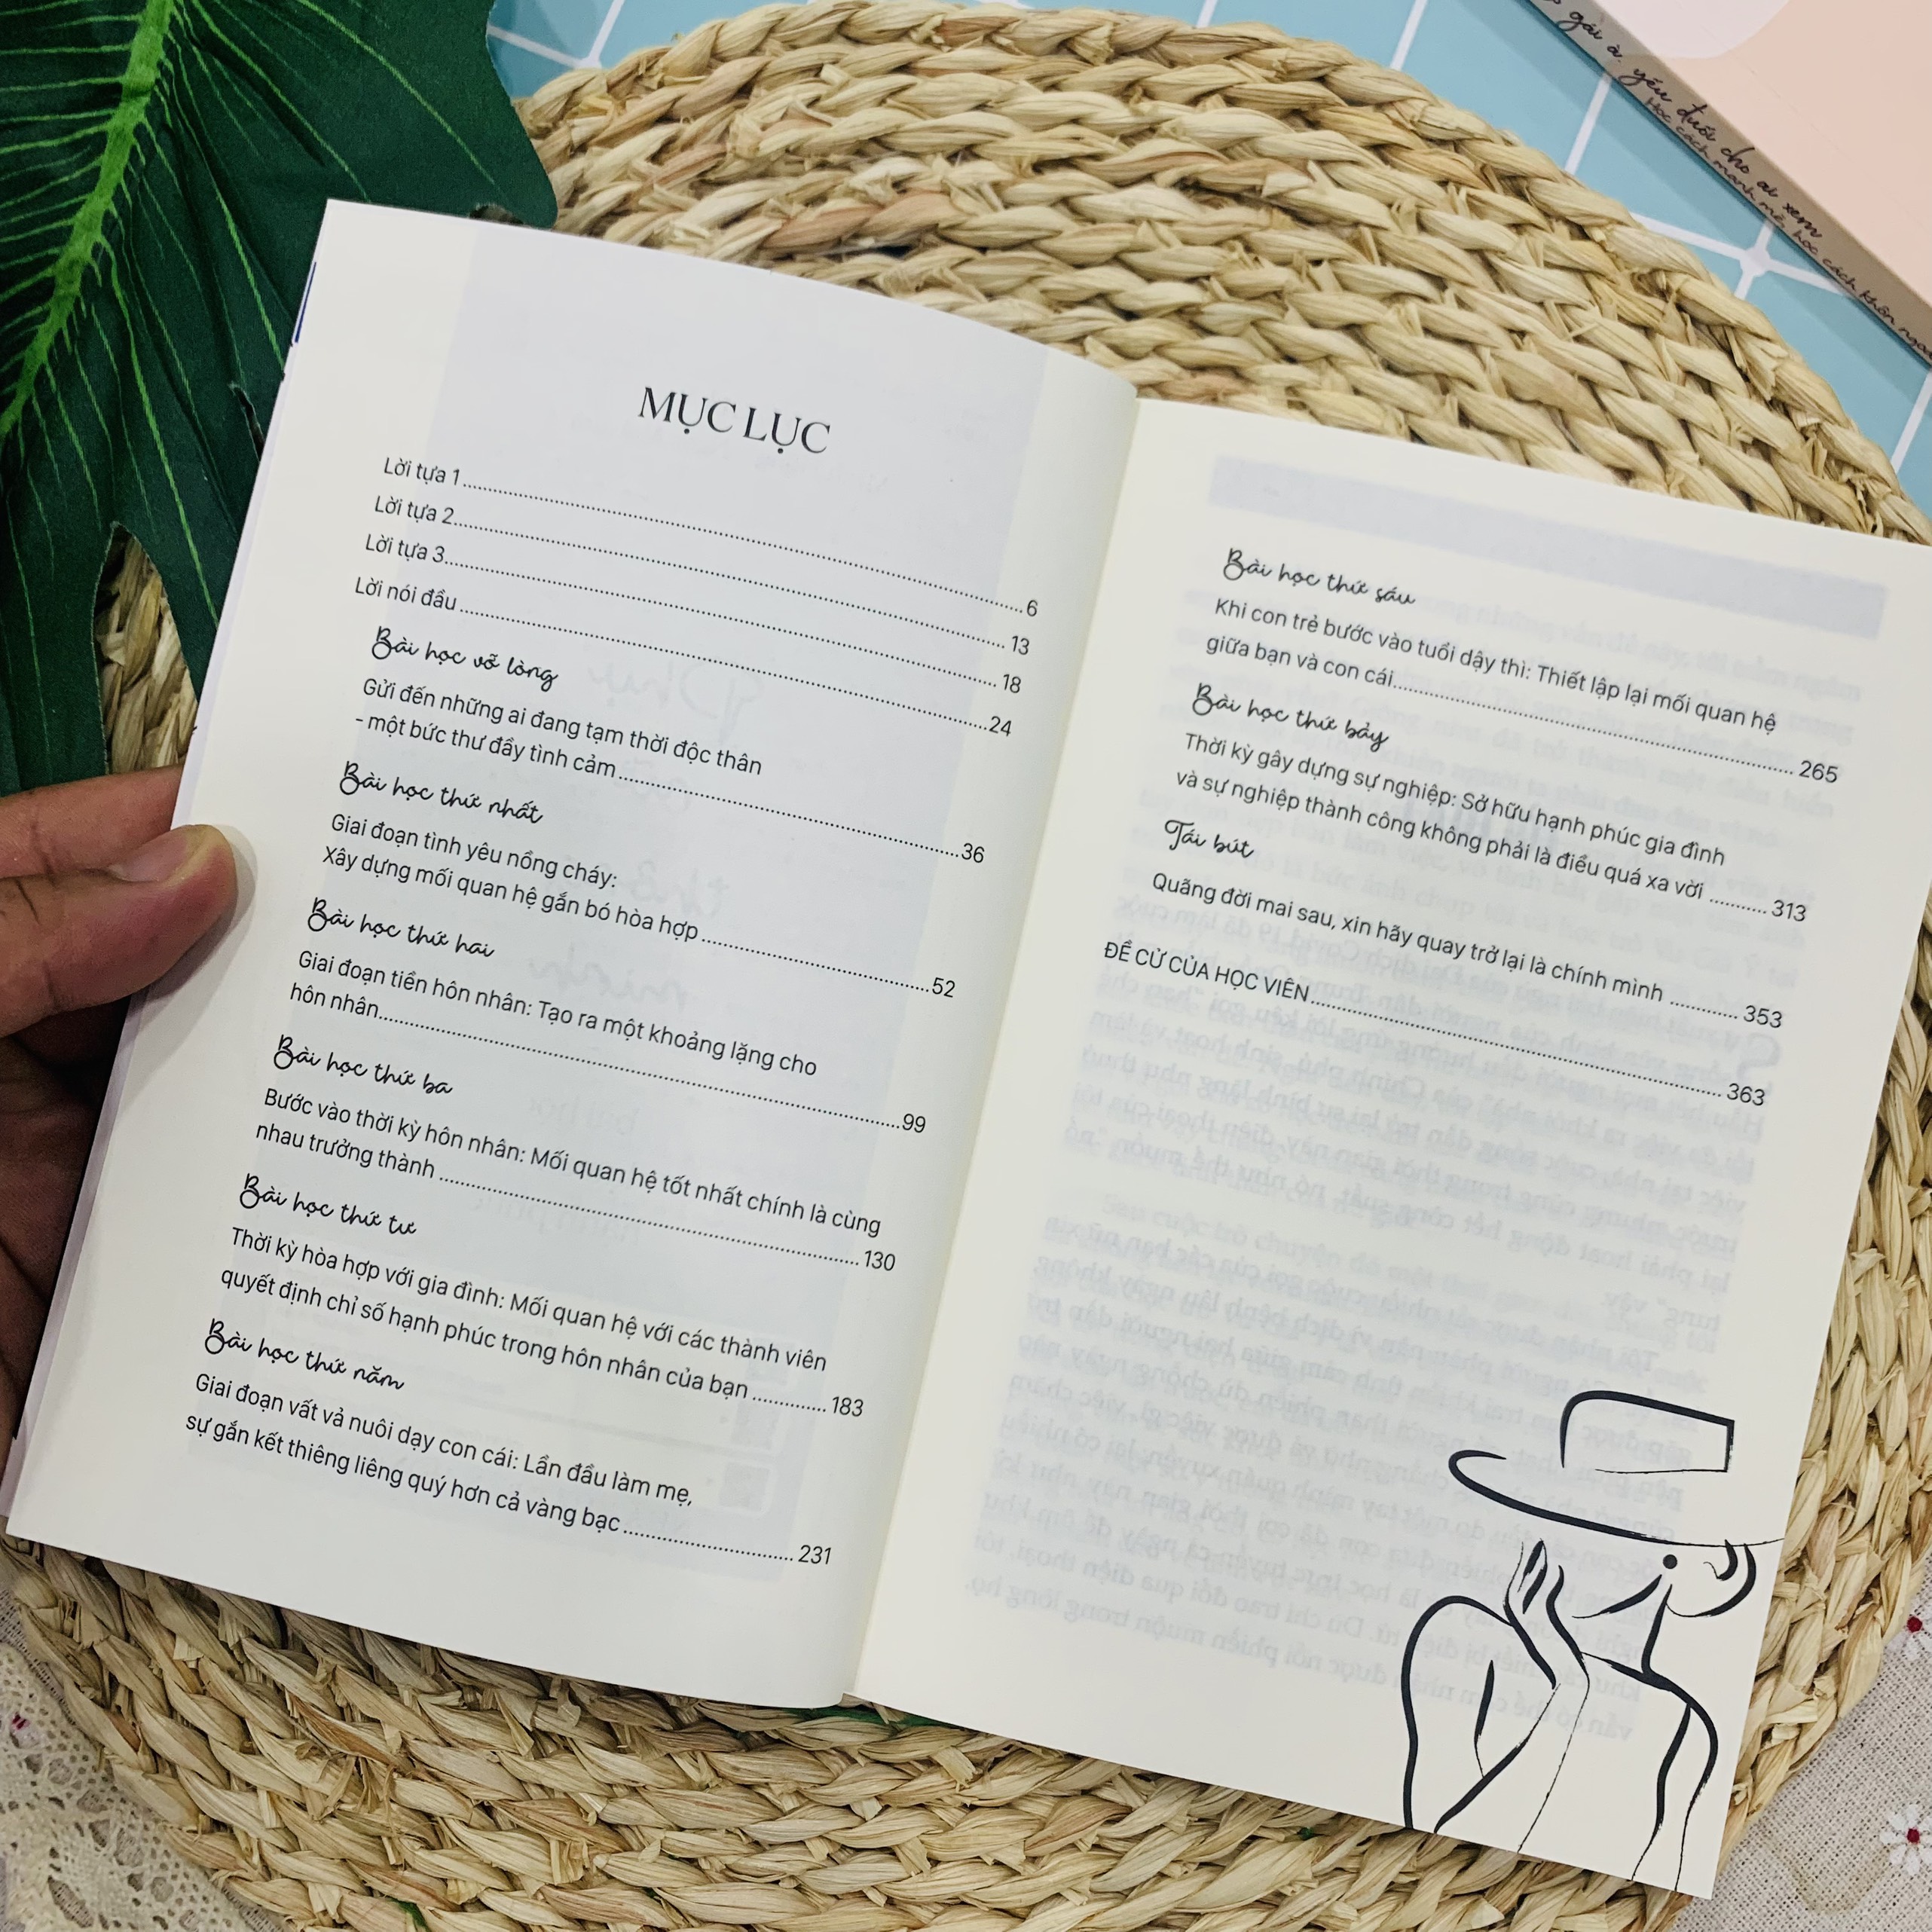 MỤC LỤC
Lời tựa 1........6
Lời tựa 2........13
Lời tựa 3........18
Lời nói đầu........24
Bài học vỡ lòng
Gửi đến những ai đang tạm thời độc thân
- một bức thư đầy tình cảm........36
Bài học thứ nhất
Giai đoạn tình yêu nồng cháy:
Xây dựng mối quan hệ gắn bó hòa hợp........52
Bài học thứ hai
Giai đoạn tiền hôn nhân: Tạo ra một khoảng lặng cho
hôn nhân........99
Bài học thứ ba
Bước vào thời kỳ hôn nhân: Mối quan hệ tốt nhất chính là cùng
nhau trưởng thành........130
Bài học thứ tư
Thời kỳ hòa hợp với gia đình: Mối quan hệ với các thành viên
quyết định chỉ số hạnh phúc trong hôn nhân của bạn........183
Bài học thứ năm
Giai đoạn vất vả nuôi dạy con cái: Lần đầu làm mẹ,
sự gắn kết thiêng liêng quý hơn cả vàng bạc........231
Bài học thứ sáu
Khi con trẻ bước vào tuổi dậy thì: Thiết lập lại mối quan hệ
giữa bạn và con cái........265
Bài học thứ bảy
Thời kỳ gây dựng sự nghiệp: Sở hữu hạnh phúc gia đình
và sự nghiệp thành công không phải là điều quá xa vời........313
Tái bút
Quãng đời mai sau, xin hãy quay trở lại là chính mình........353
ĐỀ CỬ CỦA HỌC VIÊN........363
gái à, yếu đuối cho ai xem
Học cách mạnh mẽ, học cách khôn ngoan